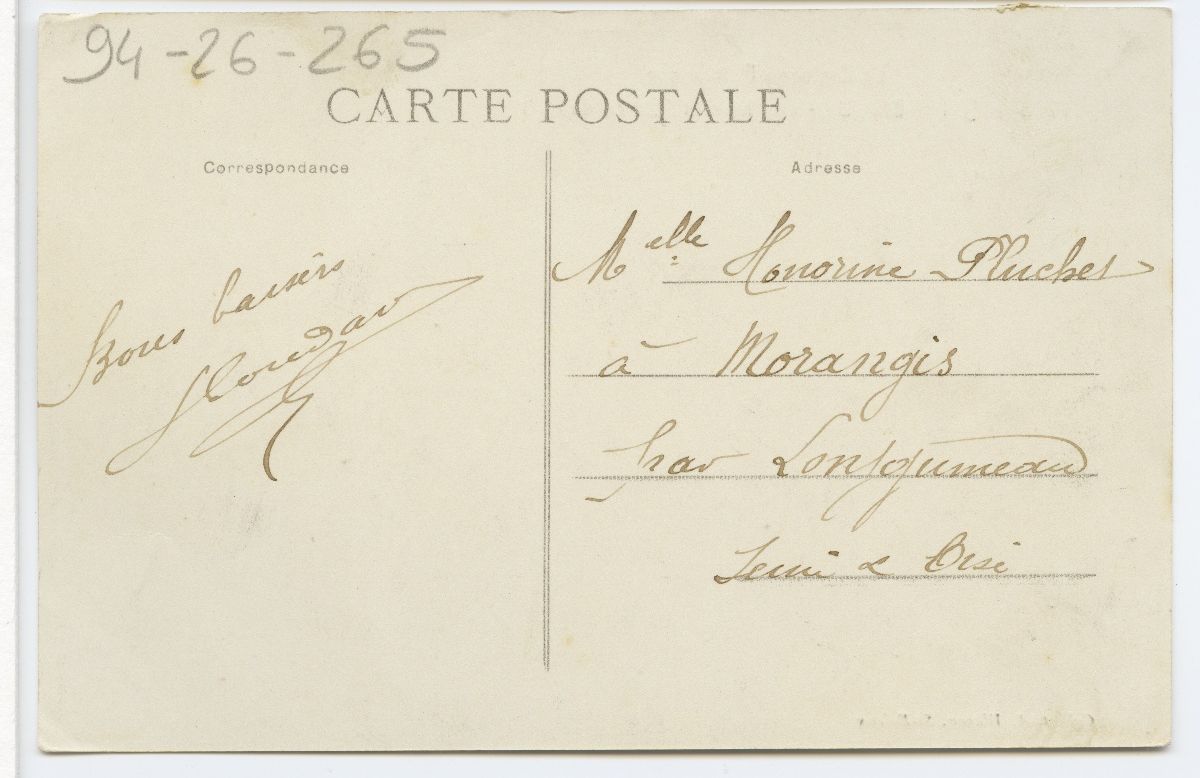 94-26-265
CARTE POSTALE
Correspondance
Adresse
Bons baisers
Melle Honorine Pluchet
à Morangis
par Lonjgumeau
Seine & Oise